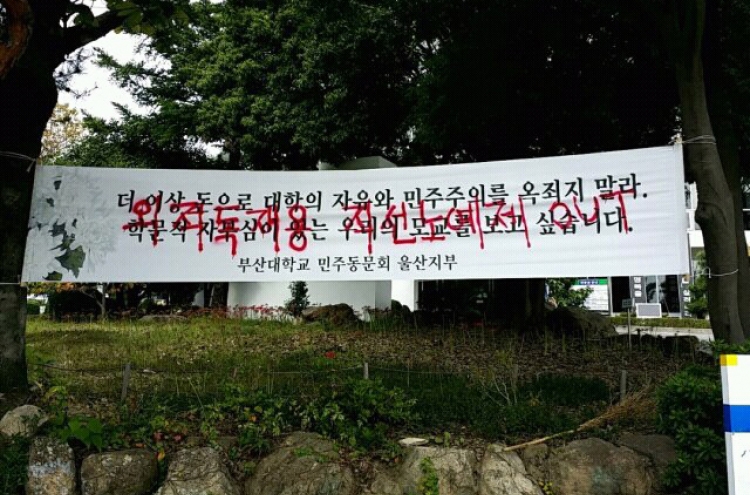 더 이상 돈으로 대학의 자유와 민주주의를 옥죄지 말라.
학문적 자부심이 있는 우리의 모교를 보고 싶습니다.
부산대학교 민주동문회 울산지부
독재용 직선노예제